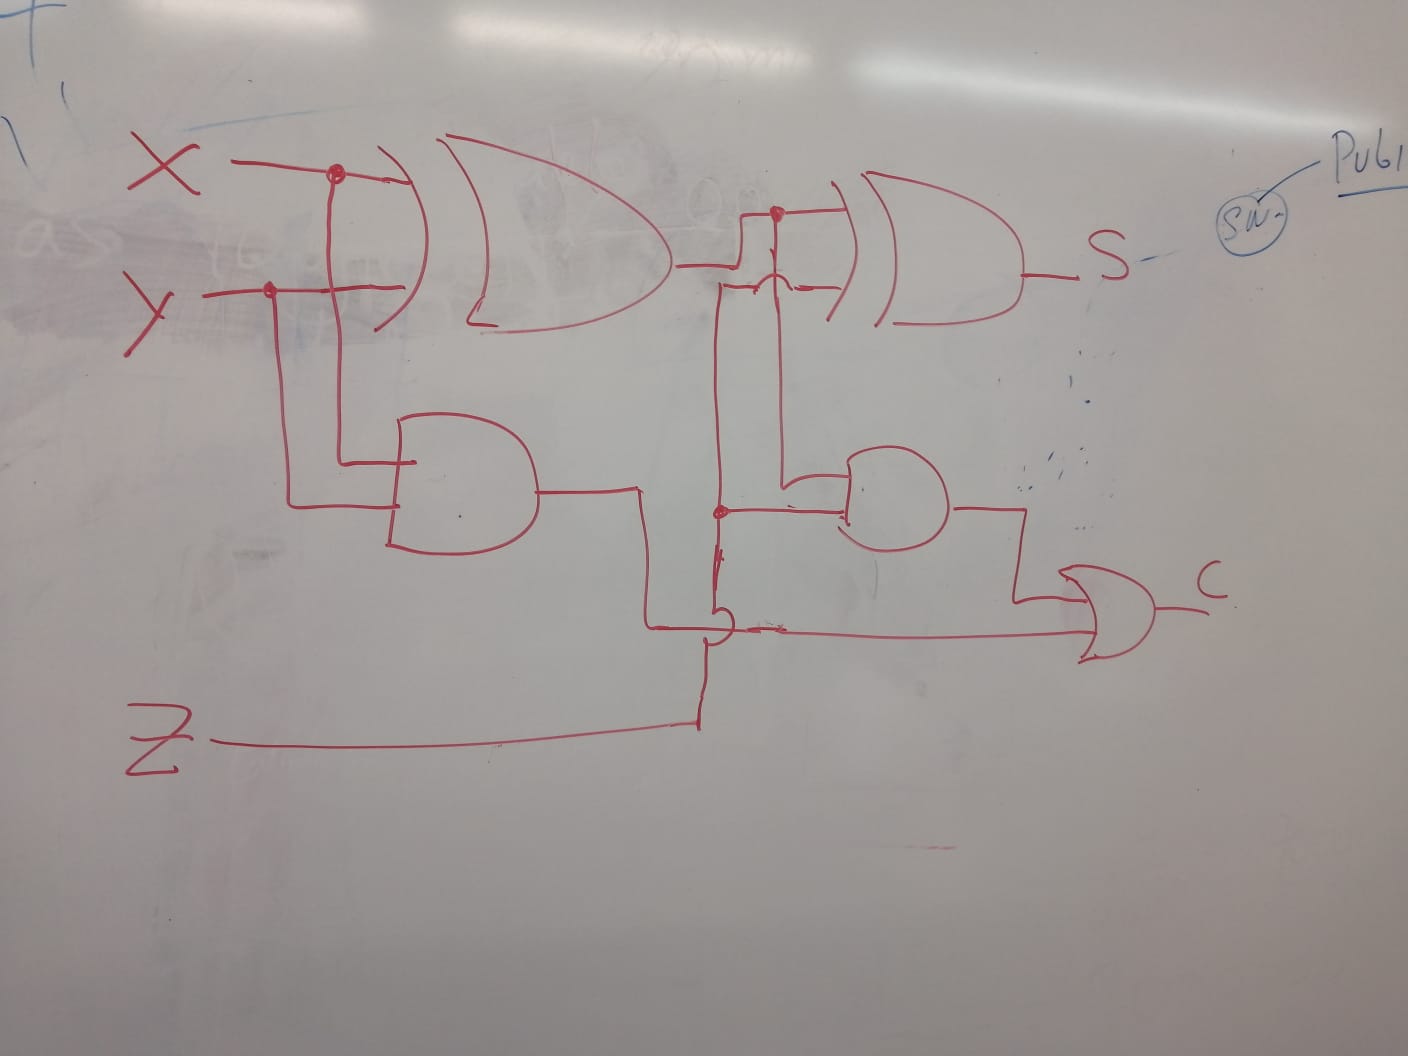 X
Y
Z
S
C
SW.
Publ
as